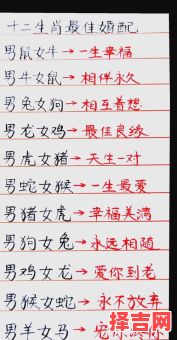 十二生肖最佳婚配
男鼠女牛→一生幸福
男牛女鼠→相伴永久
男兔女狗→相互着想
男龙女鸡→最佳良缘
男虎女猪→天生一对
男蛇女猴→一生最爱
男猪女虎→幸福美满
男狗女兔→永远相随
男鸡女龙→爱你到老
男猴女蛇→永不放弃
男羊女马→宠你
择吉网
zejiwang.com